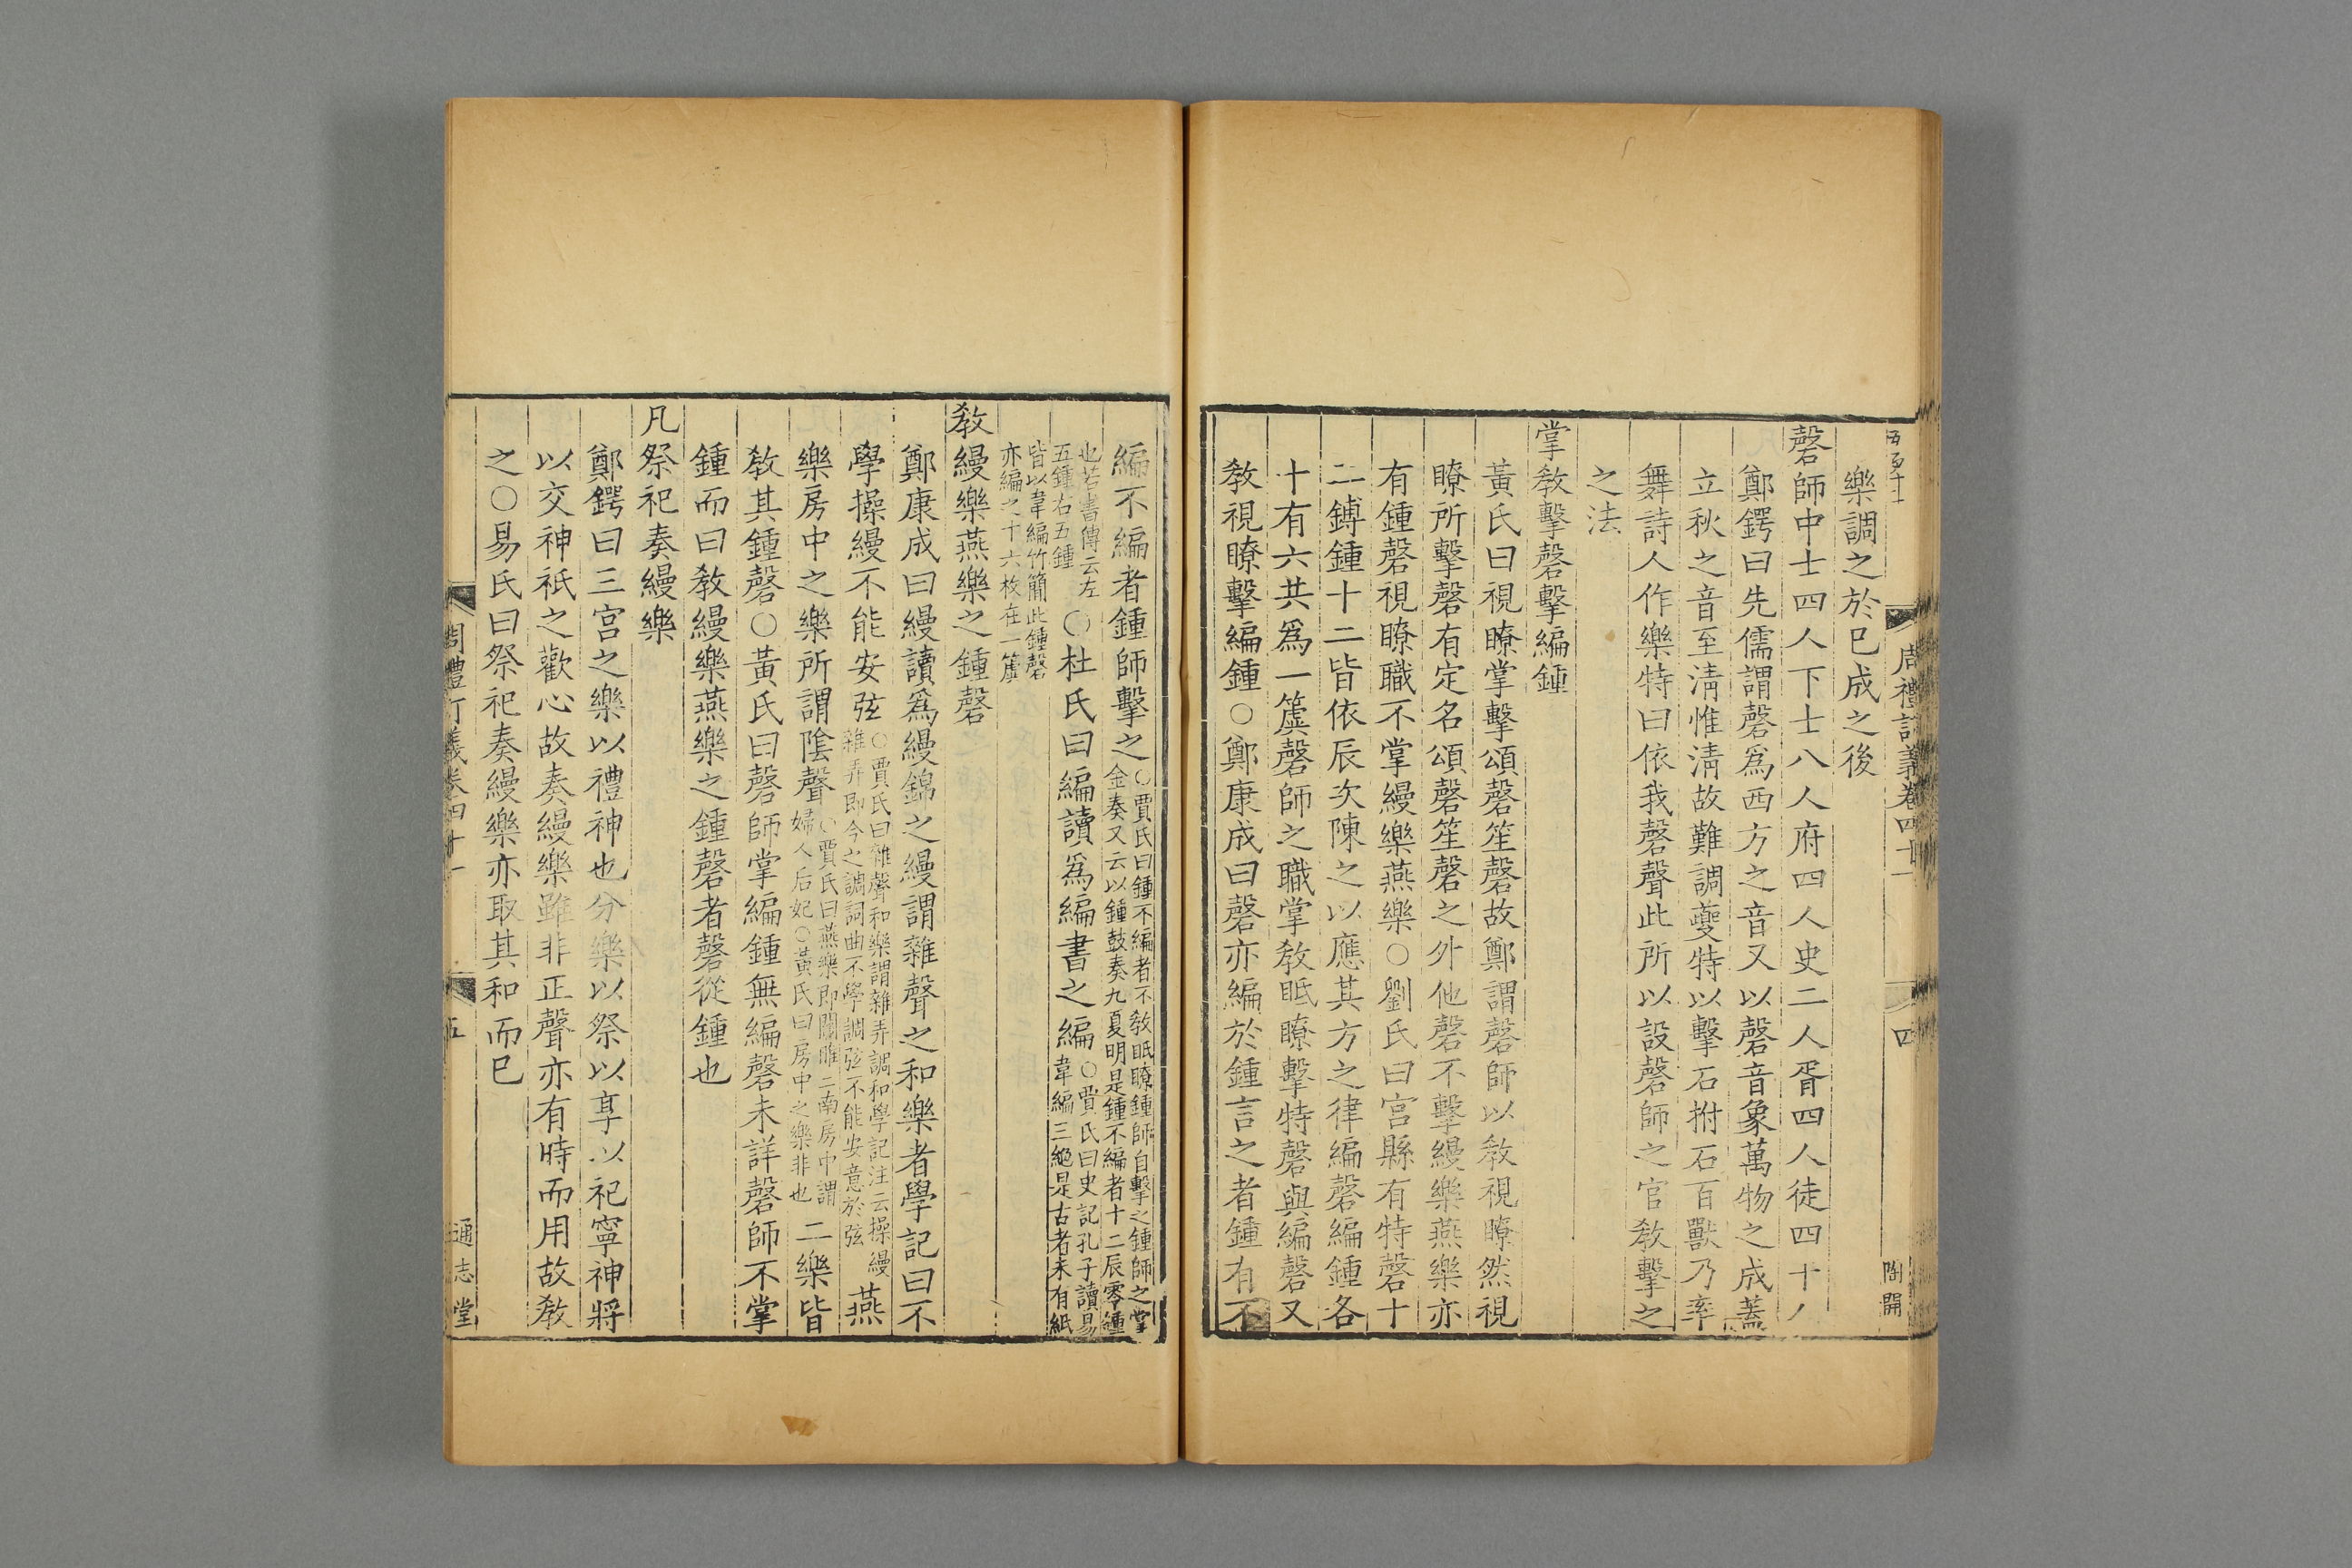 五百十一
周禮訂義卷四十一
四
陶開
樂調之於已成之後
磬師中士四人下士八人府四人史二人胥四人徒四十人
鄭鍔曰先儒謂磬爲西方之音又以磬音象萬物之成蓋
立秋之音至淸惟淸故難調夔特以擊石拊石百獸乃率
舞詩人作樂特曰依我磬聲此所以設磬師之官敎擊之
之法
掌敎擊磬擊編鍾
黃氏曰視瞭掌擊頌磬笙磬故鄭謂磬師以敎視瞭然視
瞭所擊磬有定名頌磬笙磬之外他磬不擊縵樂燕樂亦
有鍾磬視瞭職不掌縵樂燕樂○劉氏曰宮縣有特磬十
二鎛鍾十二皆依辰次陳之以應其方之律編磬編鍾各
十有六共爲一簴磬師之職掌敎眂瞭擊特磬與編磬又
敎視瞭擊編鍾○鄭康成曰磬亦編於鍾言之者鍾有不
編不編者鍾師擊之○賈氏曰鍾不編者不敎眂瞭鍾師自擊之鍾師之掌
金奏又云以鍾鼓奏九夏明是鍾不編者十二辰零鍾
也若書傳云左
五鍾右五鍾
○杜氏曰編讀爲編書之編○賈氏曰史記孔子讀易
韋編三絕是古者未有紙
皆以韋編竹簡此鍾磬
亦編之十六枚在一簴
敎縵樂燕樂之鍾磬
鄭康成曰縵讀爲縵錦之縵謂雜聲之和樂者學記曰不
學操縵不能安弦○賈氏曰雜聲和樂謂雜弄調和學記注云操縵
雜弄即今之調詞曲不學調弦不能安意於弦
燕
樂房中之樂所謂陰聲○賈氏曰燕樂即關雎二南房中謂
婦人后妃○黃氏曰房中之樂非也
二樂皆
敎其鍾磬○黃氏曰磬師掌編鍾無編磬未詳磬師不掌
鍾而曰敎縵樂燕樂之鍾磬者磬從鍾也
凡祭祀奏縵樂
鄭鍔曰三宮之樂以禮神也分樂以祭以享以祀寧神將
以交神祇之歡心故奏縵樂雖非正聲亦有時而用故敎
之○易氏曰祭祀奏縵樂亦取其和而已
周禮訂義卷四十一
五
通志堂